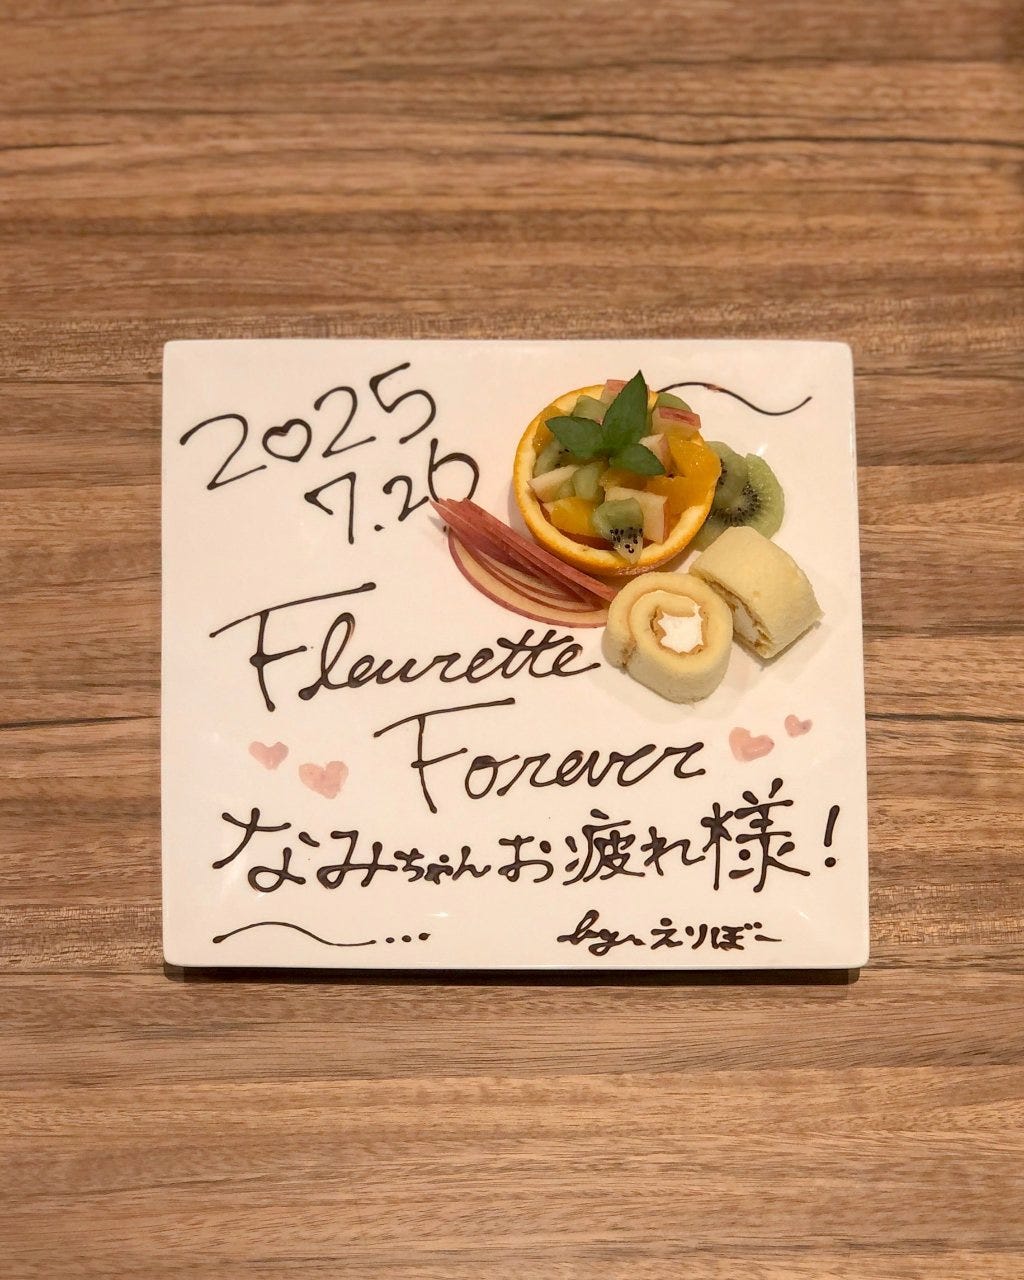 2025
7.26
Fleurette
Forever
なみちゃんお疲れ様!
~...
by.えりぼー